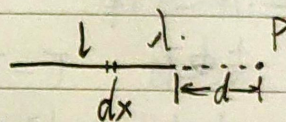 l λ. P
dx d